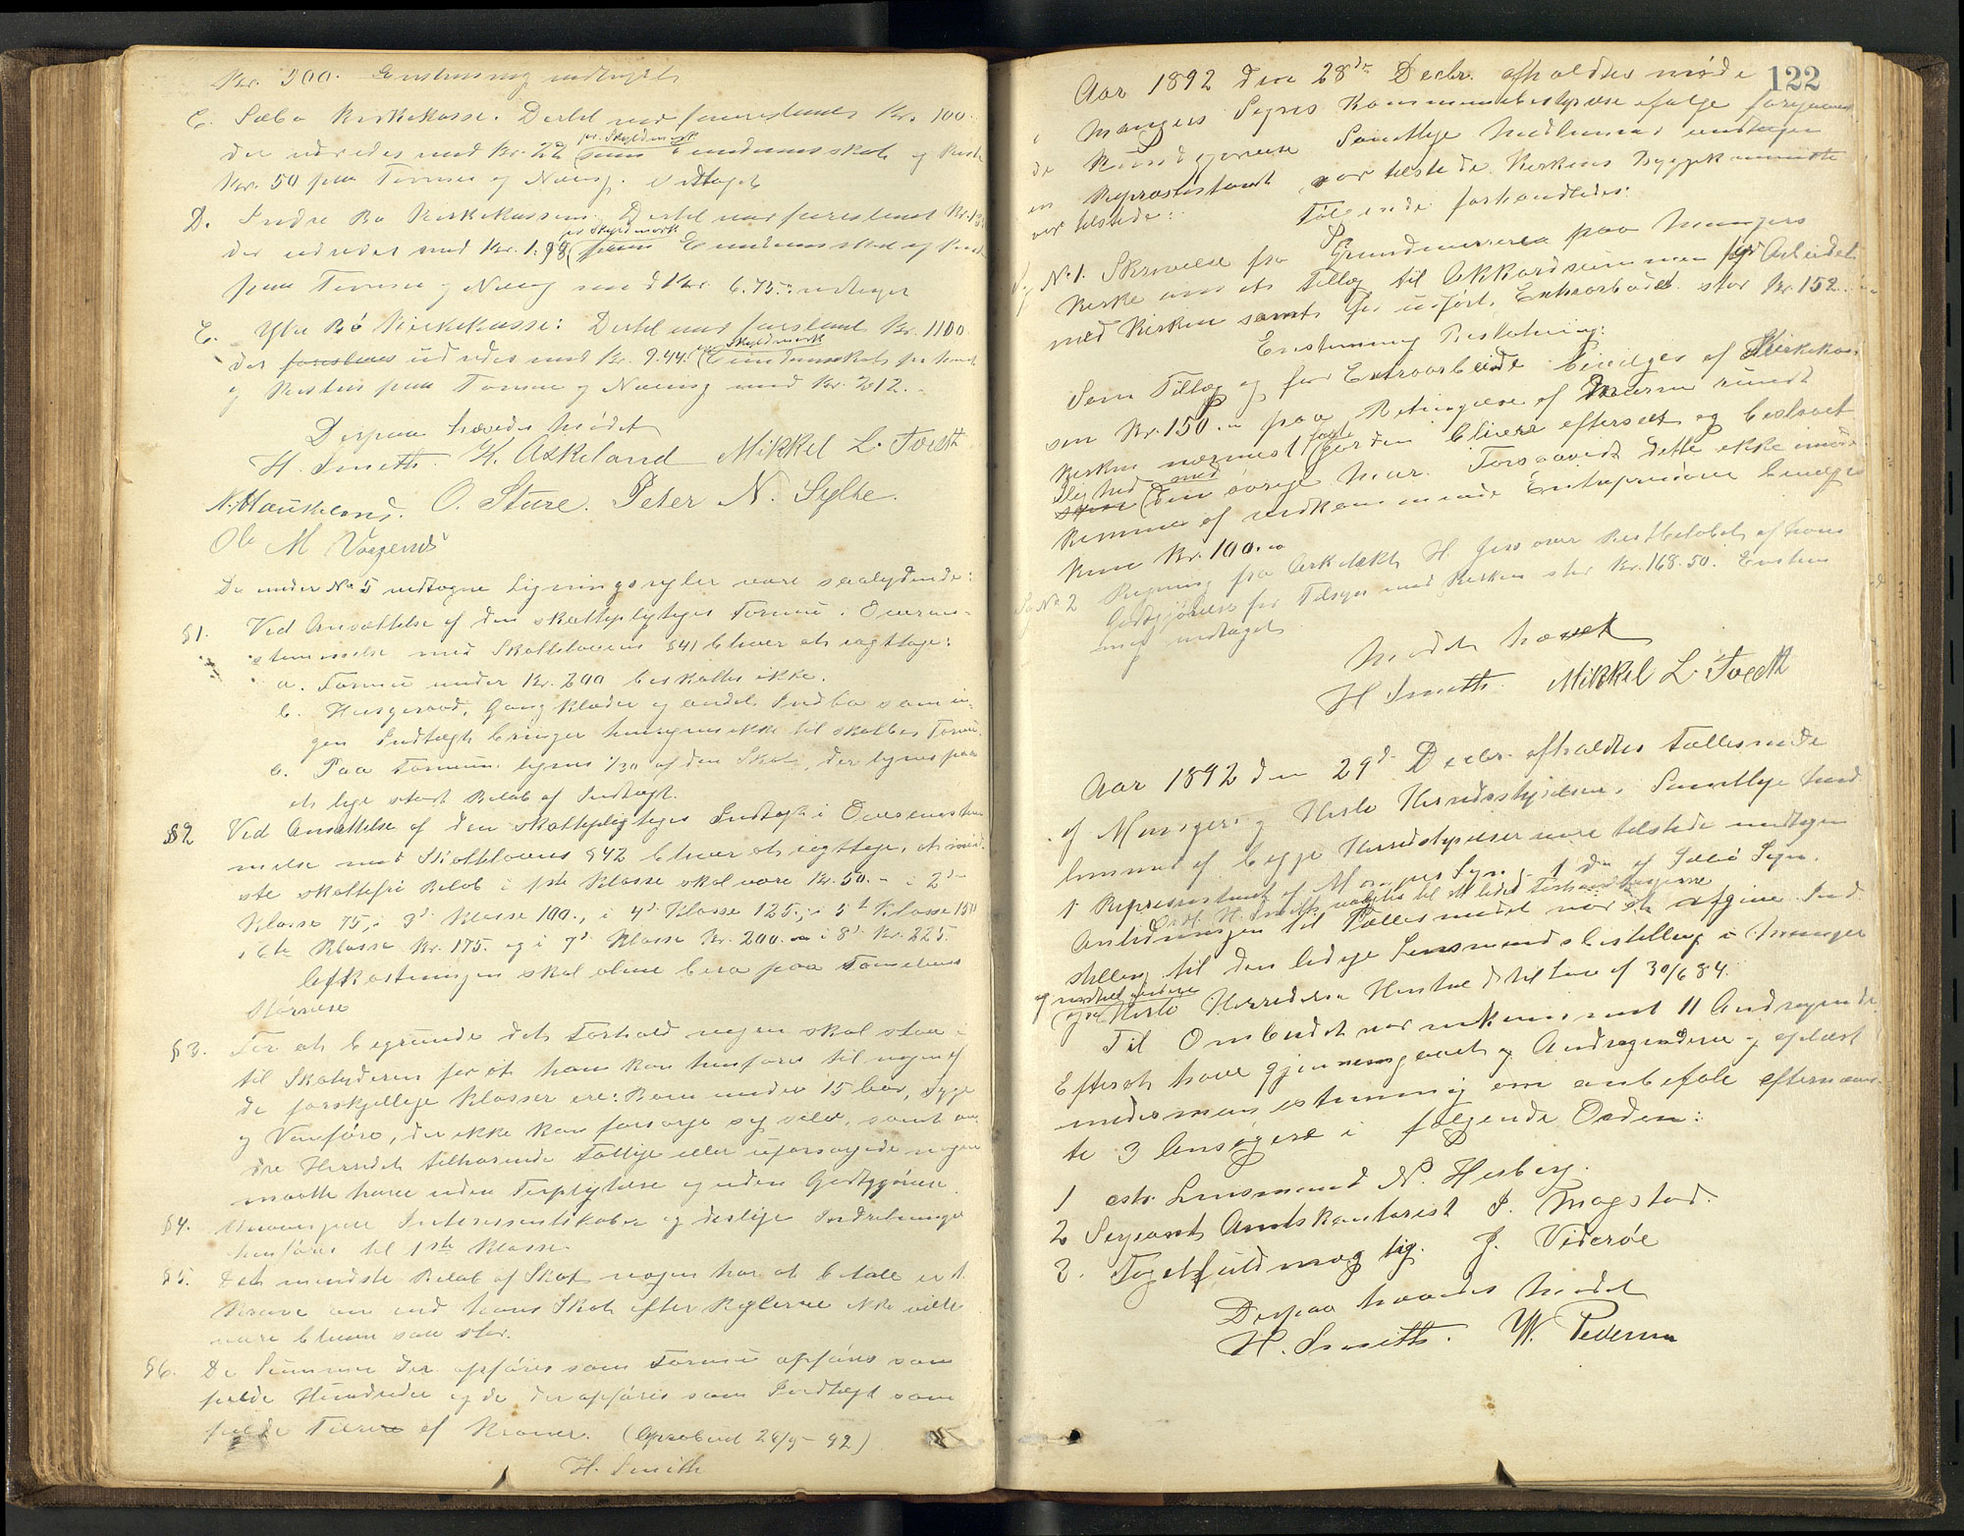 Kr. 500. Enstemmig vedtaget
C. Sæbø Kirkekasse. Dertil var foreslaaet Kr. 100.
der udredes med Kr. 22 pr. Skyldmark Eiendomsskat og Rest
Kr. 50 paa Formue og Næring. Vedtaget
D. Indre Bø Kirkekasse. Dertil var foreslaaet Kr.
der udredes med Kr. 1.98 pr Skyldmark Eiendomsskat og Rest
paa Formue og Næring med Kr. 6.75. vedtaget
E. Ytre Bø Kirkekasse: Dertil var foreslaaet Kr. 1100
der foreslaaes udredes med Kr. 9.44. pr Skyldmark Eiendomsskat
og Resten paa Formue og Næring med Kr. 212.
Derpaa hævedes Mødet
H. Smith. K. Askeland Mikkel L. Tvedt
N. Haukeland. O. Sture. Peter N. Sylte.
Ole M Vaagenes
De under No 5 vedtagne Ligningsregler vare saalydende:
§1. Ved Ansættelse af den skattepligtiges Formue i Overens-
stemmelse med Skatteloven §41 bliver at iagttage:
a. Formue under Kr. 200 beskattes ikke.
b. Husgeraad, Gangklæder og andet Indbo som in-
gen Indtægt bringer henregnes ikke til skattbar Formue.
c. Paa Formuen lignes 1/30 af den Skat, der lignes paa
et lige stort Beløb af Indtægt.
§2 Ved Ansættelse af den skattepligtiges Indtægt i Overensstem-
melse med Skattelovens §42 bliver at iagttage, at mind-
ste skattefri Beløb i 1ste Klasse skal være Kr. 50. - i 2den
Klasse 75, i 3d Klasse 100., i 4d Klasse 125, i 5t Klasse 150
i 6te Klasse Kr. 175. og i 7d Klasse Kr. 200. i 8d Kr. 225.
Afkastningen skal alene bero paa Familiens
Størrelse
§3. For at begrunde det Forhold nogen skal staa i
til Skatyderen for at han kan henføres til nogen af
de forskjellige Klasser ere: Børn under 15 Aar, Syge
og Vanføre, der ikke kan forsørge sig selv, samt an-
dre Herredet tilhørende Fattige eller uforsørgede nogen
maatte have uden Forpligtelse og uden Godtgjørelse.
§4. Interessentskaber og deslige Indretninger
henføres til 1ste Klasse.
§5. Det mindste Beløb af Skat nogen har at betale er 1
Krone om end hans Skat efter Reglerne ikke vilde
være bleven saa stor.
§6. De Summer der opføres som Formue opføres som
fulde Hundreder og de der opføres som Indtægt som
fulde Tiere af Kroner. (Aproberet 26/9-92)
H. Smith
122
Aar 1892 den 28de Decbr. afholdtes møde
i Mangers Sogns Kommunebestyrelse ifølge forgaaende
Kundgjørelse Samtlige Medlemmer undtagen
en Repræsentant var tilstede. Kirkens Byggekommitte
var tilstede: Følgende forhandledes:
S. No 1. Skrivelse fra Grundeierere paa Mangers
Kirke om et Tillæg til Akkordsummen for Arbeidet
med Kirken samt for udført Extraarbeide stor Kr. 152.
Enstemmig Beslutning:
Som Tillæg og for Extraarbeide bevilges af Kirkekas-
sen Kr. 150. paa Betingelse af Murene rundt
Kirken nærmest Jorden bliver efterseet og beslaaet
lig hed med den øvrige Mur. Forsaavidt dette ikke imøde-
kommes af vedkommende Entrepenører bevilges
kun Kr. 100.
S. No 2 Regning fra Arkitekt H. Jess over Restbeløbet af hans
Godtgjørelse for Tilsyn med Kirken stor Kr. 168.50. Enstem
mig vedtaget
Mødet hævet
H Smith. Mikkel L. Tvedt
Aar 1892 den 29d Decbr. afholdtes Fællesmøde
af Manger og Herlø Herredsstyrelser. Samtlige Med-
lemmer af begge Herredsstyrelser vare tilstede undtagen
1 Repræsentant af Mangers Sogn og 1 do af Sæbø Sogn.
Ordf. H. Smith valgtes til at lede Forhandlingerne
Anledningen til Fællesmødet var at afgive Ind-
stilling til den ledige Lensmandsbestilling i Manger
og Herlø Herreder i Henhold til Lov af 30/6 84.
Til Ombudet var indkommet 11 Andragender
Efterat have gjennemgaaet Andragenderne og oplæst
enedes man enstemmig om anbefale efternævn-
te 3 Ansøgere i følgende Orden:
1 cst. Lensmand N. Husberg.
2 Sergeant Amtskontorist I. Mogstad.
3. Fogdfuldmægtig. J. Viderøe
Derpaa hævedes Mødet
H. Smith. W. Pedersen